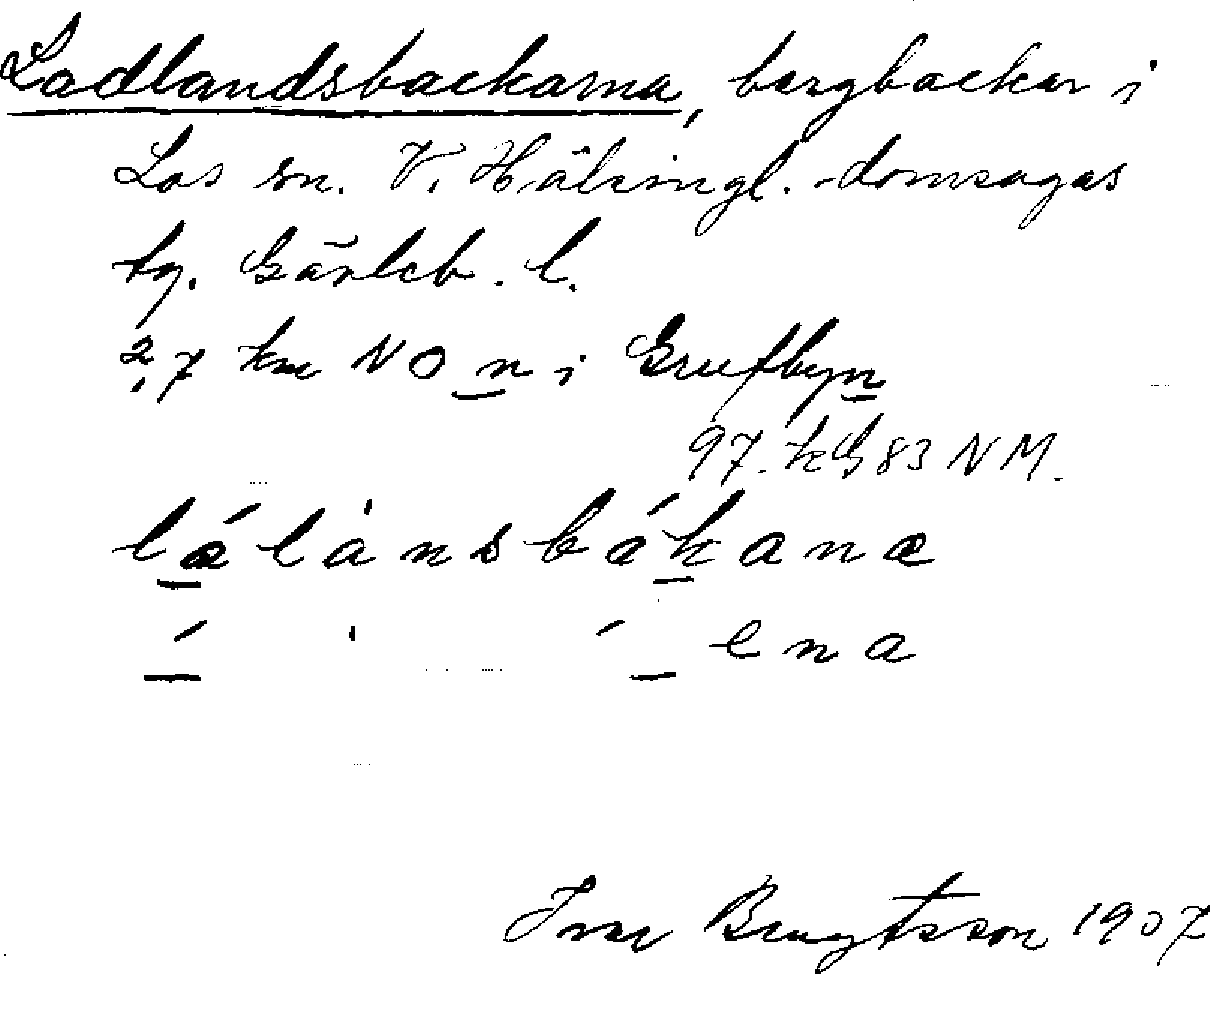 Ladlandsbackarna, bergbackar i
Los sn. V. Hälsingl. domsagas
tg. Gävleb. l.
2,7 km NO n i Grufbyn
97. k G 83 N M.
lálànsbákana
ena
Ivar Bengtsson 1907